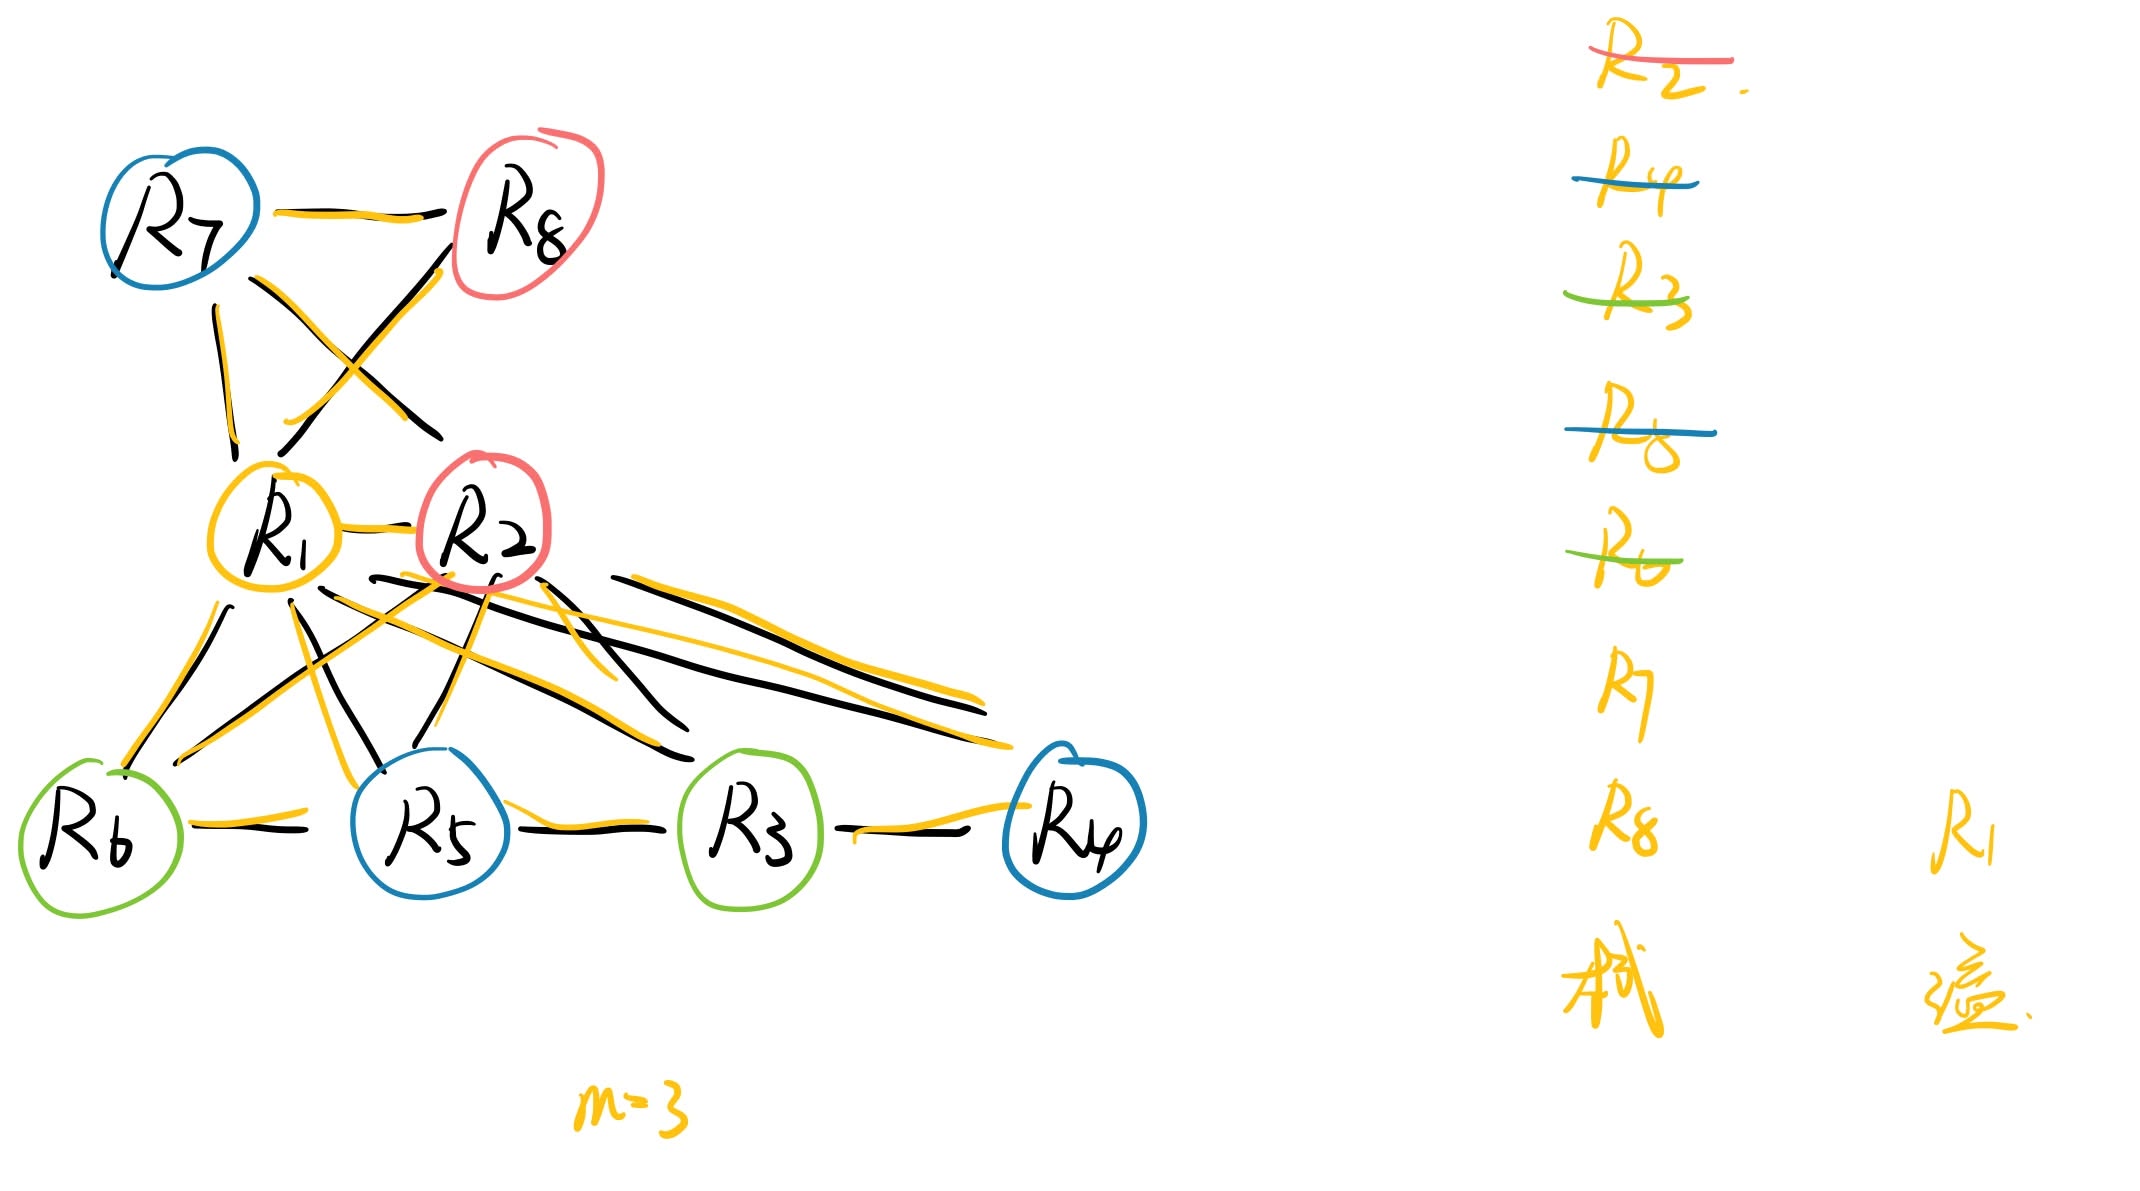 R7 R8
R1 R2
R6 R5 R3 R4
m=3
R2.
R4
R3
R5
R6
R7
R8 R1
栈 溢.